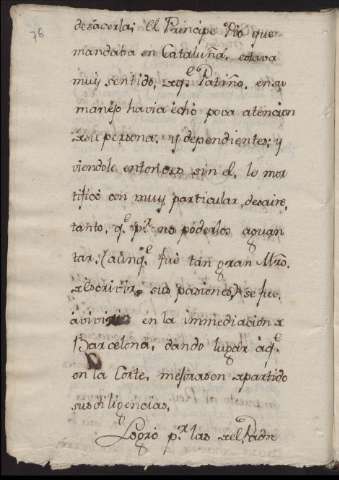 76
desacerla; el Principe Pio que
mandaba en Cataluña, estava
muy sentido, a q.e Patiño, en su
manejo havia echo poca atencion
a su persona, y dependientes; y
viendole entonces sin el, lo mor
tificò con muy particular desaire,
tanto, q.e p.r no poderlos aguan
tar, (aunq.e fuè tan gran Mro.
a corregir sus pasiones) se fue
a vivir en la immediacion a
Barcelona, dando lugar aq.e
en la Corte, mejorasen a partido
sus diligencias.
Logrò p.r las del Padre